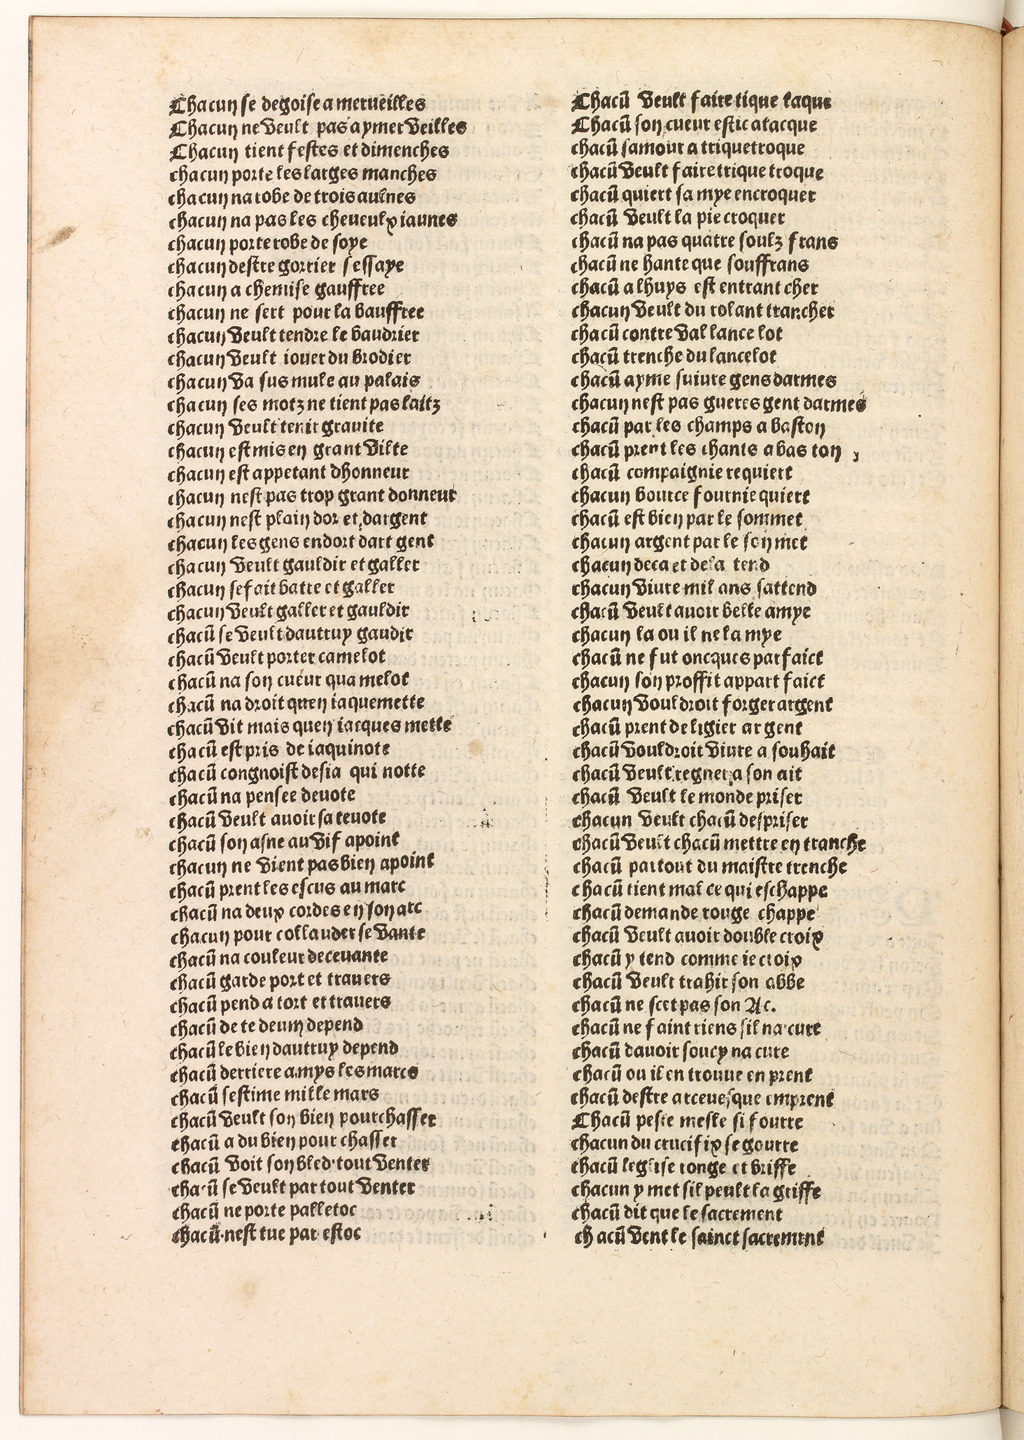 Chacun se degoise a merueilles
Chacun ne veult pas aymer veilles
Chacun tient festes et dimenches
chacun porte les larges manches
chacun na robe de trois aulnes
chacun na pas les cheueulx iaunes
chacun porte robe de soye
chacun destre gorrier sessaye
chacun a chemise gauffree
chacun ne sert pour la bauffree
chacun veult tendre le baudrier
chacun veult iouer du brodier
chacun va sus mule au palais
chacun ses motz ne tient pas laitz
chacun veult tenir grauite
chacun est mis en grant vilte
chacun est appetant dhonneur
chacun nest pas trop grant donneur
chacun nest plain dor et dargent
chacun les gens endort dart gent
chacun veult gauldir et galler
chacun se fait batre et galler
chacun veult galler et gauldir
chacũ se veult dautruy gaudir
chacũ veult porter camelot
chacũ na son cueur qua melot
chacũ na droit quen iaquemette
chacũ dit mais quen iacques mette
chacũ est pris de iaquinote
chacũ congnoist desia qui notte
chacũ na pensee deuote
chacũ veult auoir sa teuote
chacũ son asne au vif apoint
chacun ne vient pas bien apoint
chacũ prent les escus au marc
chacũ na deux cordes en son arc
chacun pour collauder se vante
chacũ na couleur deceuante
chacũ garde port et trauers
chacũ pend a tort et trauers
chacũ de te deum depend
chacũ le bien dautruy depend
chacũ derriere a mys les marcs
chacũ sestime mille mars
chacũ veult son bien pourchasser
chacũ a du bien pour chasser
chacũ voit son bled tout venter
chacũ se veult par tout venter
chacũ ne porte palletoc
chacũ nest tue par estoc
Chacũ veult faire tique taque
Chacũ son cueur estic atacque
chacũ samour a triquetroque
chacũ veult faire trique troque
chacũ quiert sa mye encroquer
chacũ veult la pie croquer
chacũ na pas quatre soulz frans
chacũ ne hante que souffrans
chacũ a lhuys est entrant cher
chacun veult du rolant trancher
chacũ contre val lance lot
chacũ trenche du lancelot
chacũ ayme suiure gens darmes
chacun nest pas gueres gent darmes
chacũ par les champs a baston
chacũ prent les chants a bas ton
chacũ compaignie requiert
chacun bource fournie quiert
chacũ est bien par le sommet
chacun argent par le son met
chacun deca et dela tend
chacun viure mil ans sattend
chacũ veult auoir belle amye
chacun la ou il ne la mye
chacũ ne fut oncques parfaict
chacun son proffit appart faict
chacun vouldroit forger argent
chacũ prent de ligier argent
chacũ vouldroit viure a souhait
chacũ veult regner a son ait
chacũ veult le monde priser
chacun veult chacũ despriser
chacũ veult chacũ mettre en tranche
chacũ partout du maistre trenche
chacũ tient mal ce qui eschappe
chacũ demande rouge chappe
chacũ veult auoir double croix
chacũ y tend comme ie croix
chacũ veult trahir son abbe
chacũ ne scet pas son Ac.
chacũ ne faint riens sil na cure
chacũ dauoir soucy na cure
chacũ ou il en trouue en prent
chacũ destre arceuesque emprent
Chacũ pesle mesle si fourre
chacun du crucifix se gourre
chacũ leglise ronge et briffe
chacun y met sil peult la griffe
chacũ dit que le sacrement
chacũ vent le sainct sacrement